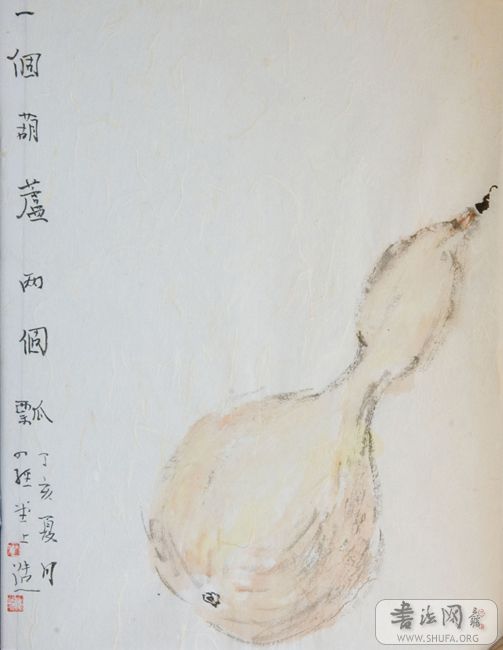 一個葫蘆兩個瓢
丁亥夏月
堂上
書法网
WWW.SHUFA.ORG